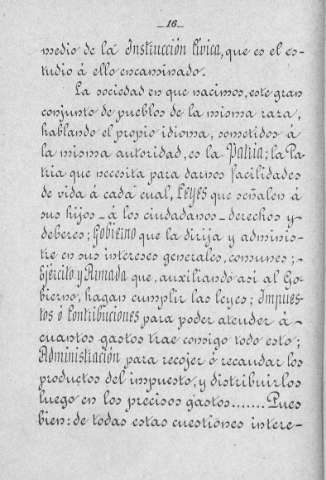 -16-
medio de la Instrucción Cívica, que es el es-
tudio á ello encaminado.
La sociedad en que nacimos, este gran
conjunto de pueblos de la misma raza,
hablando el propio idioma, sometidos á
la misma autoridad, es la Patria; la Pa-
tria que necesita para darnos facilidades
de vida á cada cual, Leyes que señalen á
sus hijos - á los ciudadanos - derechos y-
deberes; Gobierno que la dirija y adminis-
tre en sus intereses generales, comunes;-
Ejército y Armada que, auxiliando así al Go-
bierno, hagan cumplir las leyes; Impues-
tos ó Contribuciones para poder atender á-
cuantos gastos trae consigo todo esto;
Administración para recojer ó recaudar los
productos del impuesto, y distribuirlos
luego en los precisos gastos....... Pues
bien: de todas estas cuestiones intere-